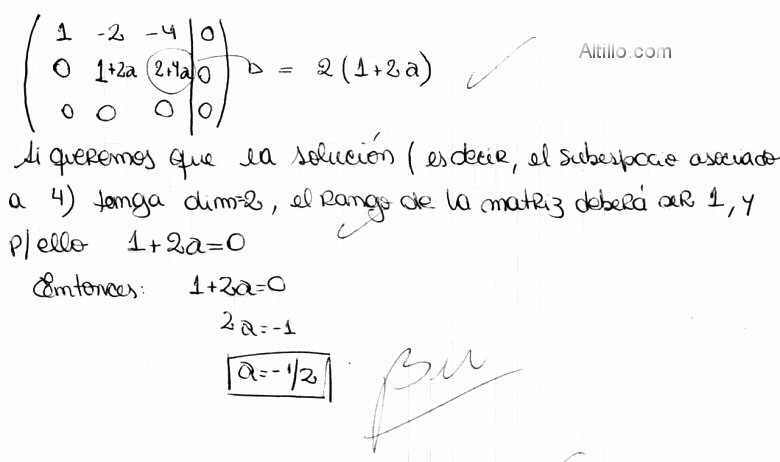 1 -2 -4 | 0
Altillo.com
0 1+2a 2+4a | 0 → = 2(1+2a)
0 0 0 | 0
Si queremos que la solución (es decir, el subespacio asociado
a 4) tenga dim=2, el rango de la matriz deberá ser 1, y
p/ello 1+2a=0
Entonces: 1+2a=0
2a=-1
a=-1/2